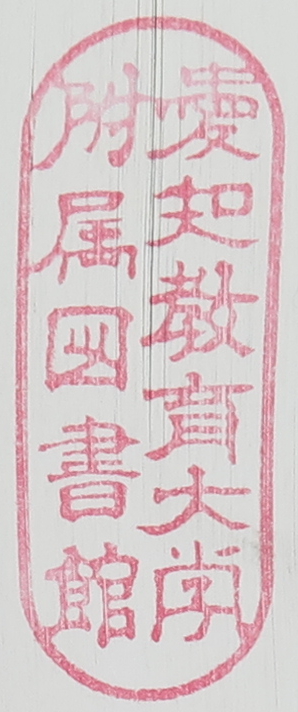 愛知教育大学
附属図書館